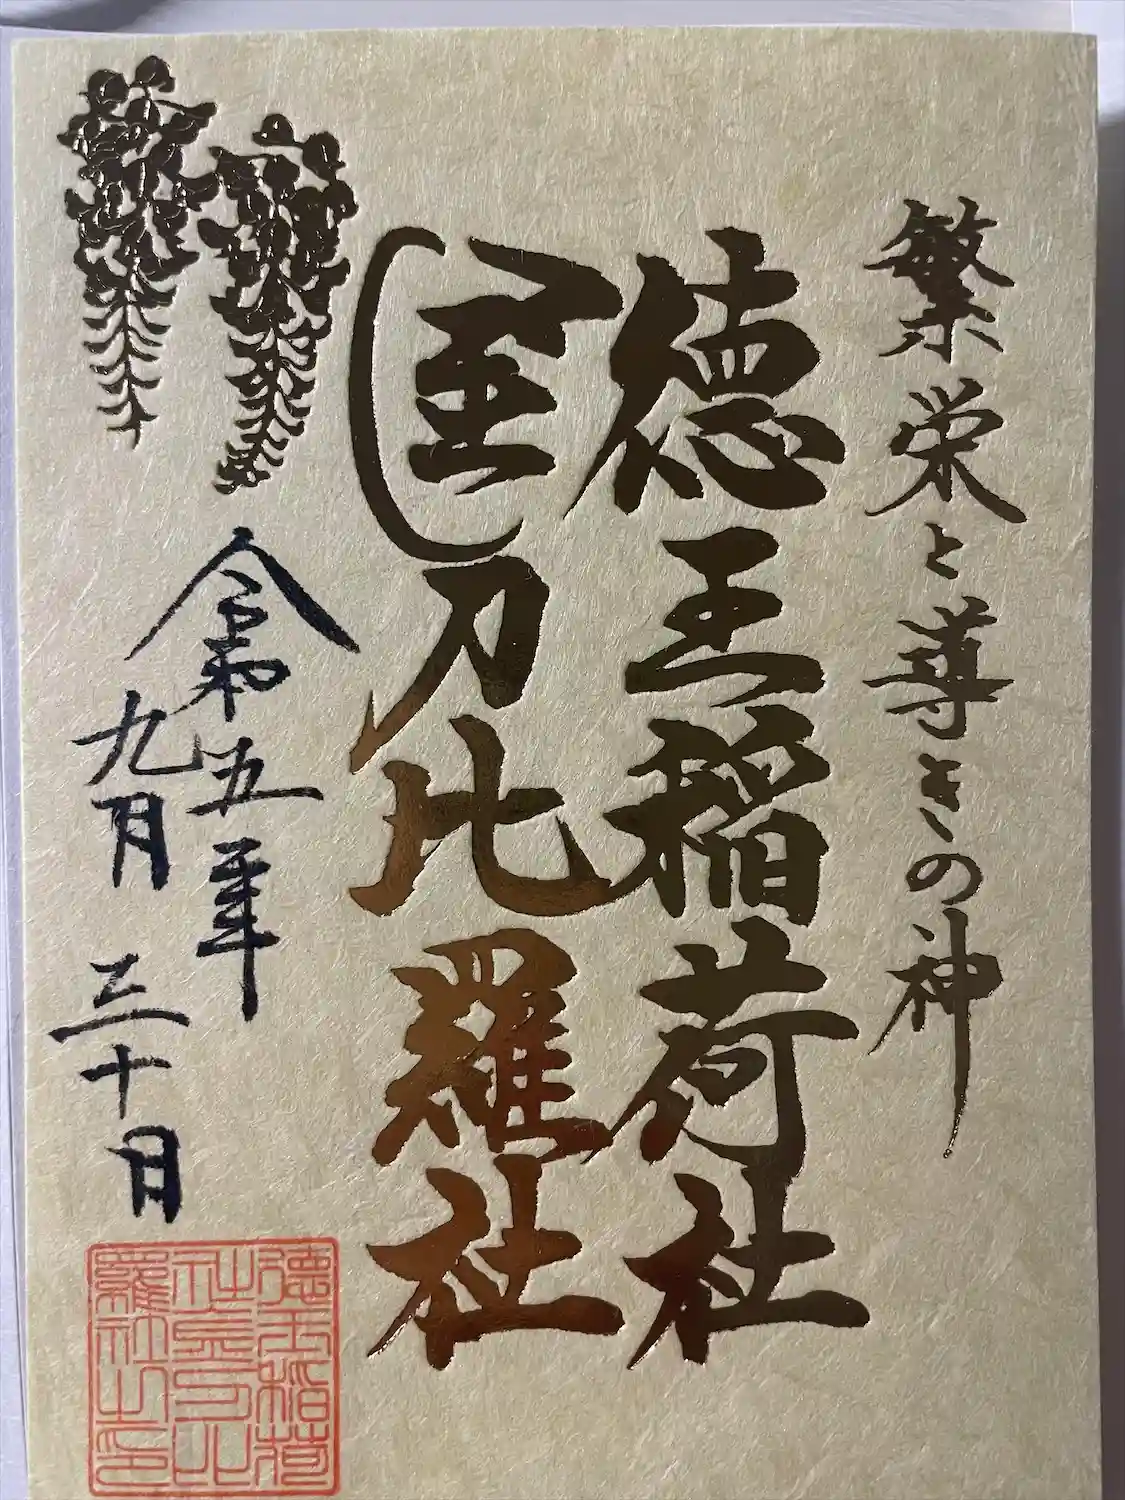 繁栄と導きの神
徳王稲荷社
金刀比羅社
令和五年
九月三十日
徳王稲荷
社金刀比
羅社之印